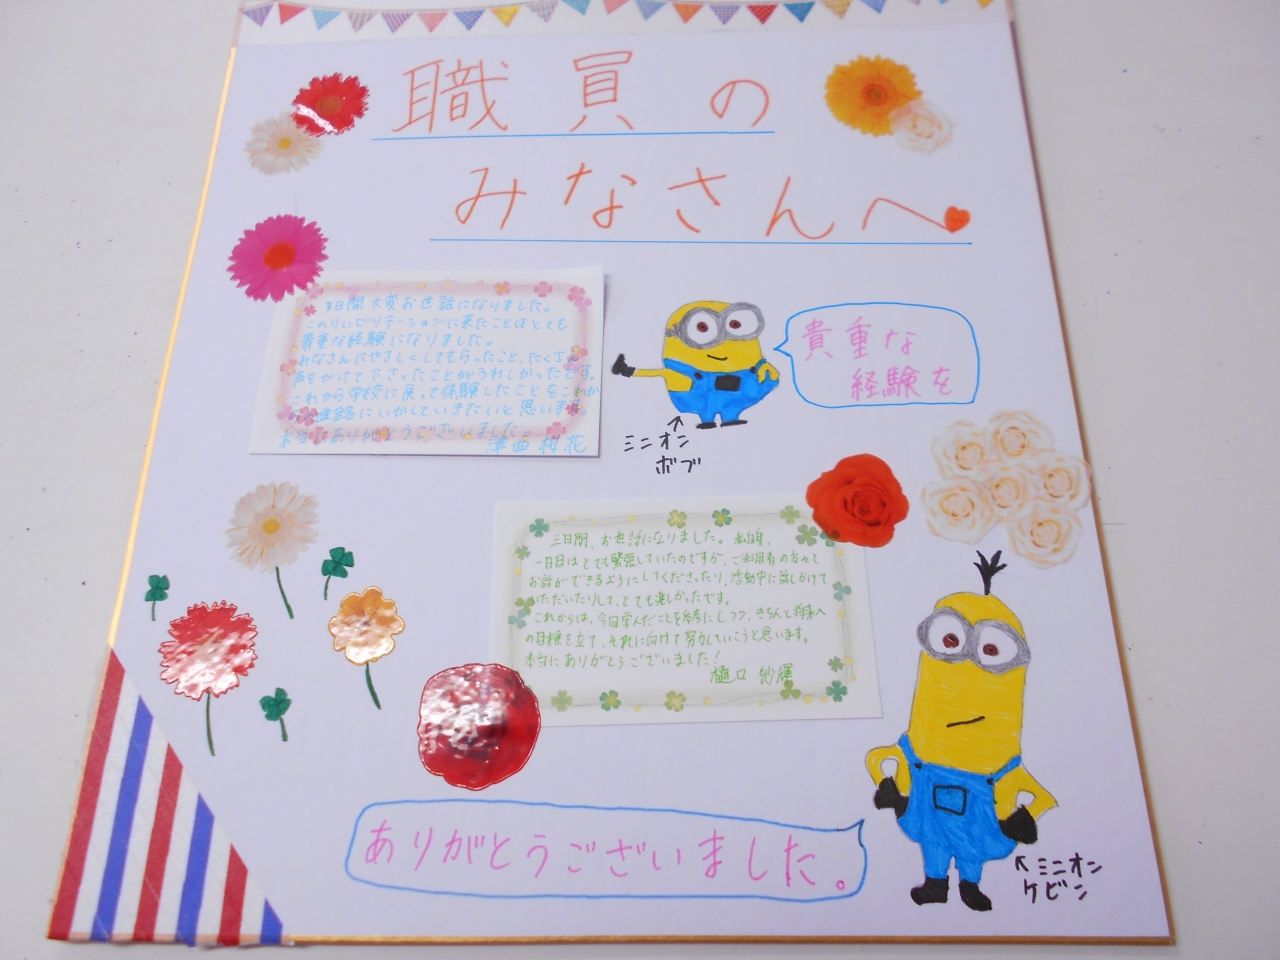 職員の
みなさんへ
3日間大変お世話になりました。
このリハビリテーションに来たことはとても
貴重な経験になりました。
みなさんにやさしくしてもらったこと、たくさん
声をかけて下さったことがうれしかったです。
これから学校に戻って体験したことをこれか
進路にいかしていきたいと思います。
本当にありがとうございました。
津曲 桜花
貴重な
経験を
ミニオン
ボブ
三日間、お世話になりました。私自身、
一日目はとても緊張していたのですが、ご利用者の方々と
お話ができるようにしてくださったり、活動中に話しかけて
いただいたりして、とても楽しかったです。
これからは、今回学んだことを参考にしつつ、きちんと将来へ
の目標を立て、それに向けて努力していこうと思います。
本当にありがとうございました!
樋口 紗輝
ありがとうございました。
ミニオン
ケビン